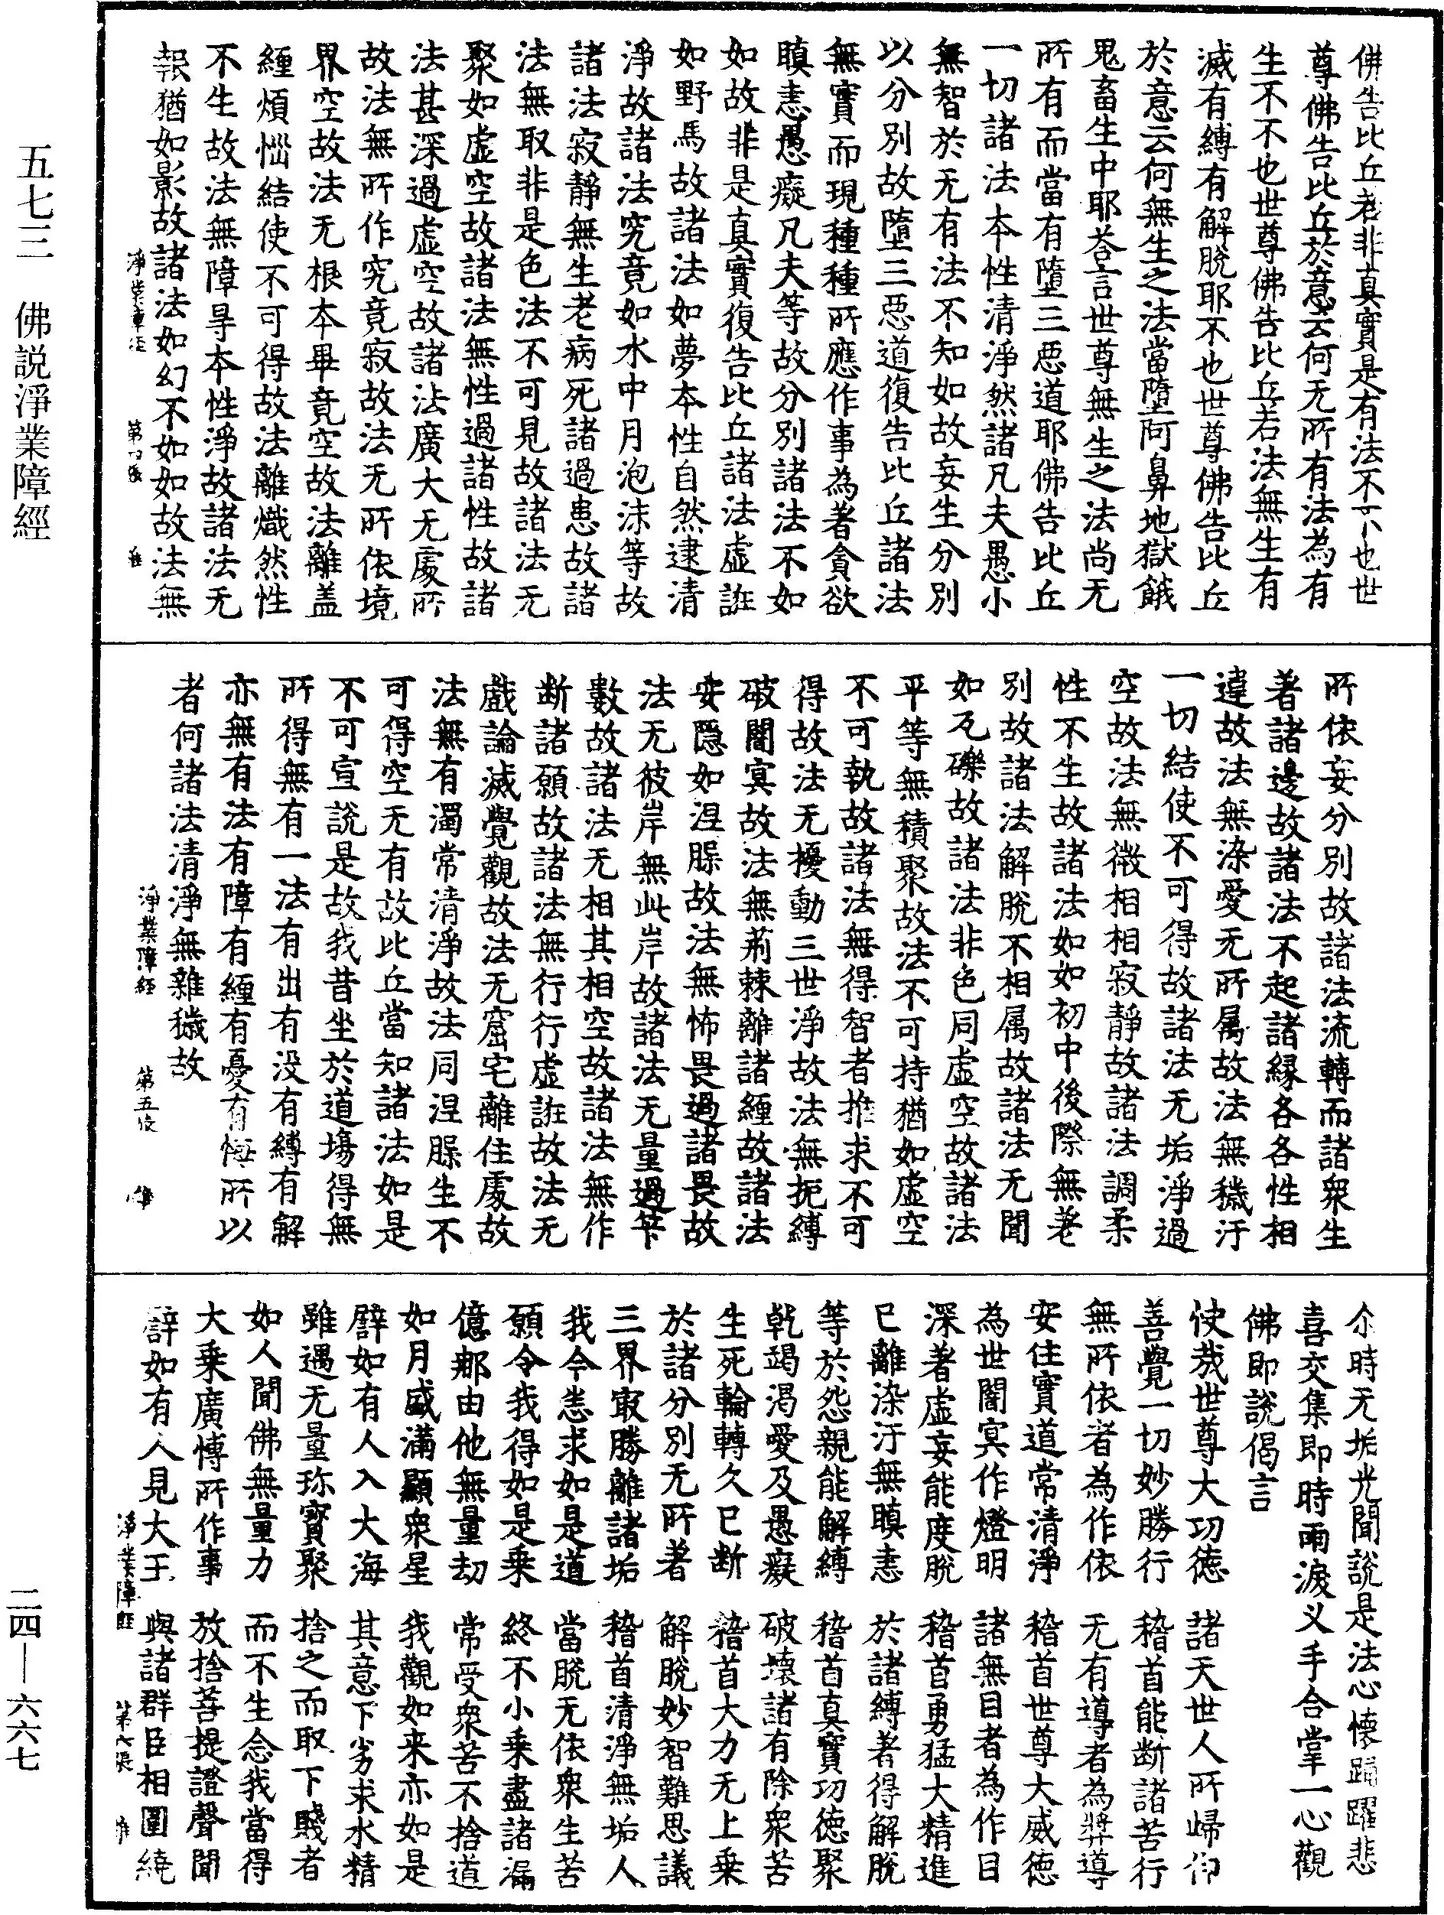 五七三　佛說淨業障經
佛告比丘若非真實是有法不不也世
尊佛告比丘於意云何无所有法為有
生不不也世尊佛告比丘若法無生有
滅有縛有解脫耶不也世尊佛告比丘
於意云何無生之法當墮阿鼻地獄餓
鬼畜生中耶荅言世尊無生之法尚无
所有而當有墮三惡道耶佛告比丘
一切諸法本性清淨然諸凡夫愚小
無智於无有法不知如故妄生分別
以分別故墮三惡道復告比丘諸法
無實而現種種所應作事為著貪欲
瞋恚愚癡凡夫等故分別諸法不如
如故非是真實復告比丘諸法虛誑
如野馬故諸法如夢本性自然逮清
淨故諸法究竟如水中月泡沫等故
諸法寂靜無生老病死諸過患故諸
法無取非是色法不可見故諸法无
聚如虛空故諸法無性過諸性故諸
法甚深過虛空故諸法廣大无處所
故法無所作究竟寂故法无所依境
界空故法无根本畢竟空故法離盖
纏煩惱結使不可得故法離熾然性
不生故法無障㝵本性淨故諸法无
報猶如影故諸法如幻不如如故法無
淨業障經　第四張
所依妄分別故諸法流轉而諸衆生
著諸邊故諸法不起諸緣各各性相
違故法無染愛无所属故法無穢汙
一切結使不可得故諸法无垢淨過
空故法無微相相寂靜故諸法調柔
性不生故諸法如如初中後際無差
別故諸法解脫不相属故諸法无聞
如瓦礫故諸法非色同虛空故諸法
平等無積聚故法不可持猶如虛空
不可執故諸法無得智者推求不可
得故法无擾動三世淨故法無扼縛
破闇冥故法無荊棘離諸纏故諸法
安隱如涅槃故法無怖畏過諸畏故
法无彼岸無此岸故諸法无量過筭
數故諸法无相其相空故諸法無作
斷諸願故諸法無行行虛誑故法无
戲論滅覺觀故法无窟宅離住處故
法無有濁常清淨故法同涅槃生不
可得空无有故比丘當知諸法如是
不可宣說是故我昔坐於道塲得無
所得無有一法有出有没有縛有解
亦無有法有障有纏有憂有悔所以
者何諸法清淨無雜穢故
淨業障經　第五張
尒時无垢光聞說是法心懷踊躍悲
喜交集即時雨淚叉手合掌一心觀
佛即說偈言
快哉世尊大功徳　諸天世人所歸仰
善覺一切妙勝行　稽首能斷諸苦行
無所依者為作依　无有導者為將導
安住實道常清淨　稽首世尊大威徳
為世闇冥作燈明　諸無目者為作目
深著虛妄能度脫　稽首勇猛大精進
已離染汙無瞋恚　於諸縛著得解脫
等於怨親能解縛　稽首真實功徳聚
乾竭渴愛及愚癡　破壞諸有除衆苦
生死輪轉久已斷　稽首大力无上乗
於諸分別无所著　解脫妙智難思議
三界最勝離諸垢　稽首清淨無垢人
我今志求如是道　當脫无依衆生苦
願令我得如是乗　終不小乗盡諸漏
億那由他無量劫　常受衆苦不捨道
如月盛滿顯衆星　我觀如来亦如是
譬如有人入大海　其意下劣求水精
雖遇无量珎寶聚　捨之而取下賤者
如人聞佛無量力　而不生念我當得
大乗廣博所作事　放捨菩提證聲聞
譬如有人見大王　與諸群臣相圍繞
淨業障經　第六張
二四—六六七